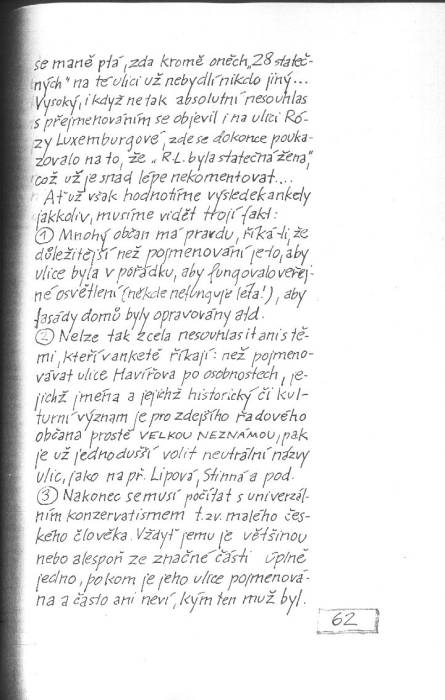 se maně ptá, zda kromě oněch „28 stateč-
ných" na té ulici už nebydlí nikdo jiný...
Vysoký, i když ne tak absolutní nesouhlas
s přejmenováním se objevil i na ulici Ró-
zy Luxemburgové, zde se dokonce pouka-
zovalo na to, že „R-L. byla statečná žena,"
což už je snad lépe nekomentovat...
Ať už však hodnotíme výsledek ankety
jakkoliv, musíme vidět trojí fakt:
① Mnohý občan má pravdu, říká-li, že
důležitější než pojmenování je to, aby
ulice byla v pořádku, aby fungovalo veřej-
né osvětlení (někde nefunguje léta!), aby
fasády domů byly opravovány atd.
② Nelze tak zcela nesouhlasit ani s tě-
mi, kteří v anketě říkají: než pojmeno-
vávat ulice Havířova po osobnostech, je-
jichž jména a jejichž historický či kul-
turní význam je pro zdejšího řadového
občana prostě VELKOU NEZNÁMOU, pak
je už jednodušší volit neutrální názvy
ulic, jako např. Lipová, Stinná a pod.
③ Nakonec se musí počítat s univerzál-
ním konzervatismem t.zv. malého čes-
kého člověka. Vždyť jemu je většinou
nebo alespoň ze značné části úplně
jedno, po kom je jeho ulice pojmenová-
na a často ani neví, kým ten muž byl.
62